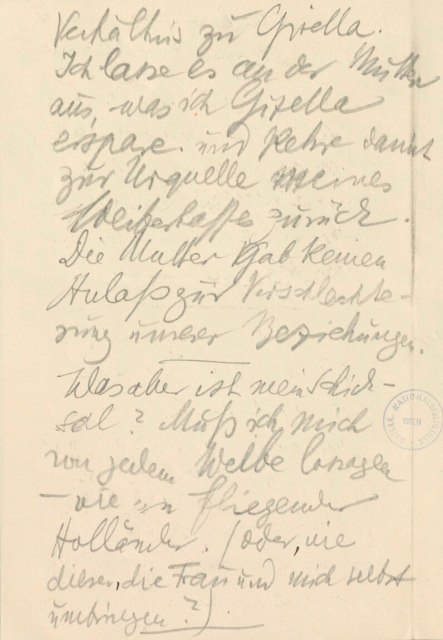 Verhältnis zu Gisella.
Ich lasse es an der Mutter
aus, was ich Gisella
erspare. und kehre damit
zur Urquelle meines
Weiberhasses zurück.
Die Mutter gab keinen
Anlaß zur Verschlechte-
rung unserer Beziehungen.
Was aber ist mein Schick-
sal? Muß ich mich
von jedem Weibe lossagen
– wie ein fliegender
Holländer. (oder, wie
dieser, die Frau und mich selbst
umbringen?).
NATIONALBIBLIOTHEK
WIEN